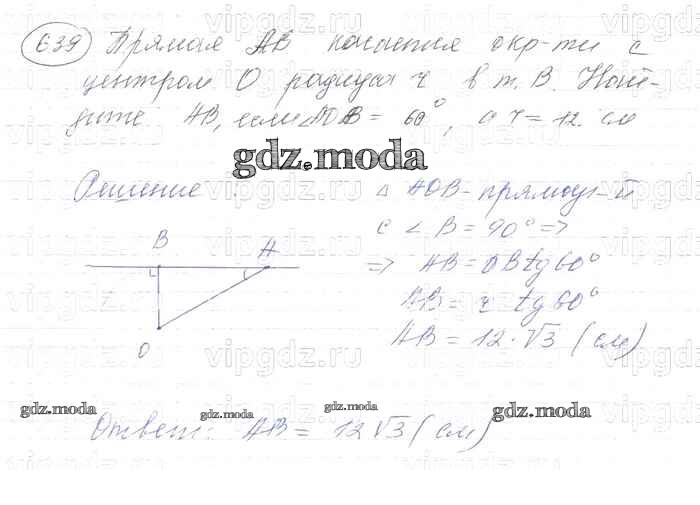 639 Прямая AB касается окр-ти с
центром O радиуса r в т. B. Най-
дите AB, если ∠AOB = 60°, а r = 12 см
gdz.moda
Решение
△ AOB - прямоуг-й
с ∠B = 90° =>
=> AB = OB tg 60°
AB = r tg 60°
AB = 12 · √3 (см)
B
A
O
gdz.moda
gdz.moda
gdz.moda
Ответ: AB = 12√3 (см)
vipgdz.ru